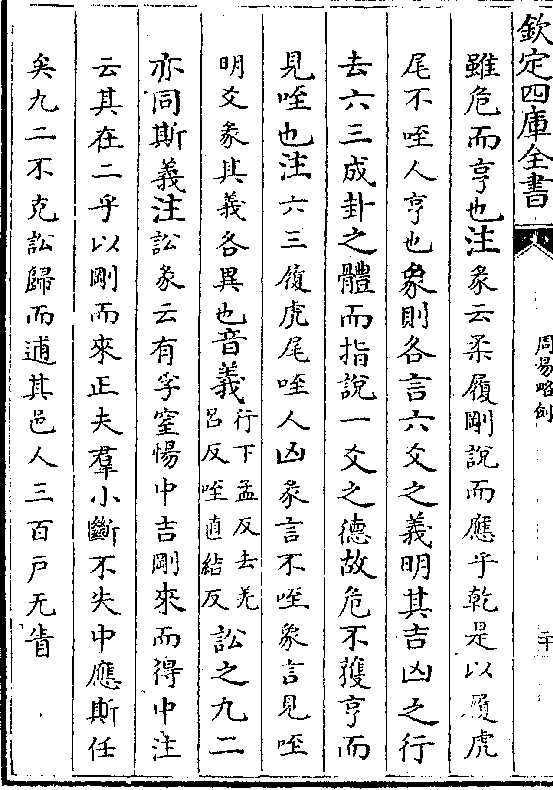 欽定四庫全書
周易略例
二十
雖危而亨也注彖云柔履剛說而應乎乾是以履虎
尾不咥人亨也象則各言六爻之義明其吉凶之行
去六三成卦之體而指說一爻之德故危不獲亨而
見咥也注六三履虎尾咥人凶彖言不咥象言見咥
明爻彖其義各異也音義行下孟反去羌呂反咥直結反訟之九二
亦同斯義注訟彖云有孚窒惕中吉剛來而得中注
云其在二乎以剛而來正夫羣小斷不失中應斯任
矣九二不克訟歸而逋其邑人三百戶无眚